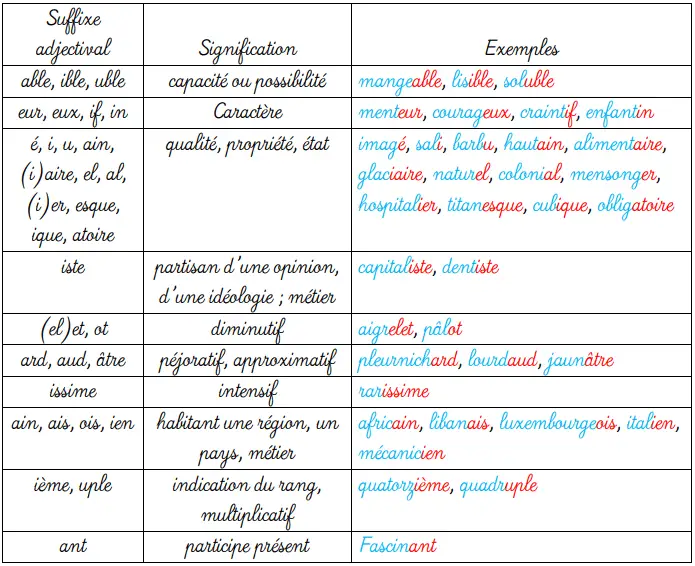 Suffixe
adjectival
Signification
Exemples
able, ible, uble
capacité ou possibilité
mangeable, lisible, soluble
eur, eux, if, in
Caractère
menteur, courageux, craintif, enfantin
é, i, u, ain,
(i)aire, el, al,
(i)er, esque,
ique, atoire
qualité, propriété, état
imagé, sali, barbu, hautain, alimentaire,
glaciaire, naturel, colonial, mensonger,
hospitalier, titanesque, cubique, obligatoire
iste
partisan d'une opinion,
d'une idéologie ; métier
capitaliste, dentiste
(el)et, ot
diminutif
aigrelet, pâlot
ard, aud, âtre
péjoratif, approximatif
pleurnichard, lourdaud, jaunâtre
issime
intensif
rarissime
ain, ais, ois, ien
habitant une région, un
pays, métier
africain, libanais, luxembourgeois, italien,
mécanicien
ième, uple
indication du rang,
multiplicatif
quatorzième, quadruple
ant
participe présent
Fascinant